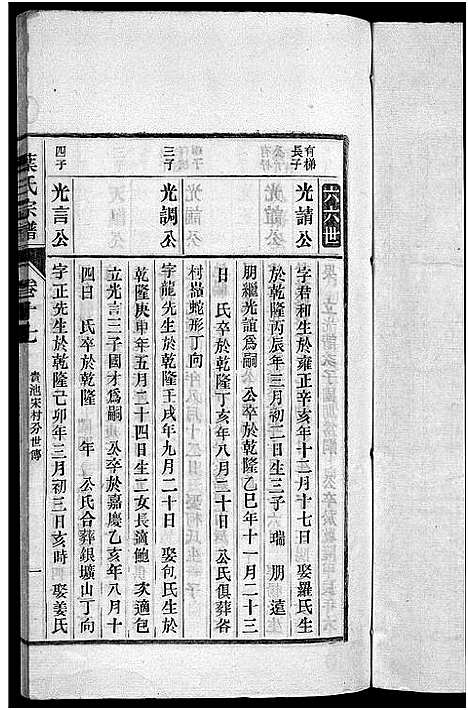 六六世
有梯長子
光請公
字君和生於雍正辛亥年十二月十七日 娶羅氏生
於乾隆丙辰年三月初二日生三子 瑞 朋 遠
朋繼光誼爲嗣 公卒於乾隆乙巳年十一月二十三
日 氏卒於乾隆丁亥年八月二十日 公氏俱葬谷
村嶺蛇形丁向
三子
光調公
字龍先生於乾隆壬戌年九月二十日 娶何氏生於
乾隆庚申年五月二十四日生二女長適鮑 次適包
立光言三子國才爲嗣 公卒於嘉慶乙亥年八月十
四日 氏卒於乾隆 年 公氏合葬銀壙山丁向
四子
光言公
字正先生於乾隆己卯年三月初三日亥時 娶姜氏
葉氏宗譜
卷十七
貴池宋村分世傳
一